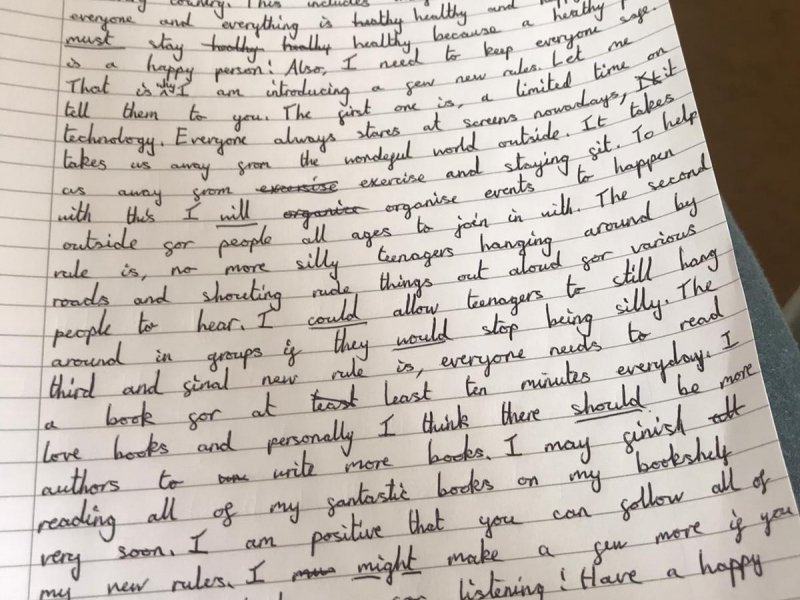 country. This includes
everyone and everything is heathy healthy and
must stay heathy heathy healthy because a healthy
is a happy person! Also, I need to keep everyone safe.
That is why I am introducing a few new rules. Let me
tell them to you. The first one is, a limited time on
technology. Everyone always stares at screens nowadays, It it
takes us away from the wondeful world outside. It takes
us away from exercise exercise and staying fit. To help
with this I will organise organise events to happen
outside for people all ages to join in with. The second
rule is, no more silly teenagers hanging around by
roads and shouting rude things out aloud for various
people to hear. I could allow teenagers to still hang
around in groups if they would stop being silly. The
third and final new rule is, everyone needs to read
a book for at least least ten minutes everyday. I
love books and personally I think there should be more
authors to write more books. I may finish all
reading all of my fantastic books on my bookshelf
very soon. I am positive that you can follow all of
my new rules. I might make a few more if you
for listening! Have a happy